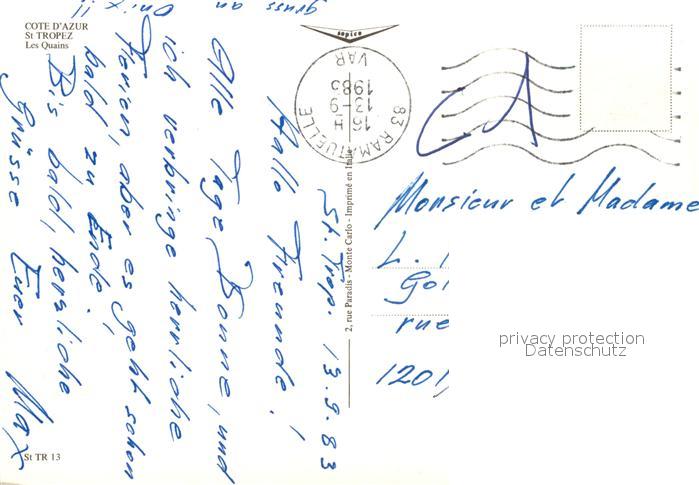 COTE D'AZUR
St TROPEZ
Les Quains
sapico
83 RAMATUELLE
16 H
13-9
1983
VAR
2, rue Paradis - Monte Carlo - Imprimé en Italie
St. Trop. 13.9.83
Hallo Freunde!
Alle Tage Sonne, und
ich verbringe herrliche
Ferien, aber es geht schon
bald zu Ende!
Bis bald, herzliche
Grüsse Euer Max
gruss an
Monsieur et Madame
L.
rue
1201
privacy protection
Datenschutz
St TR 13